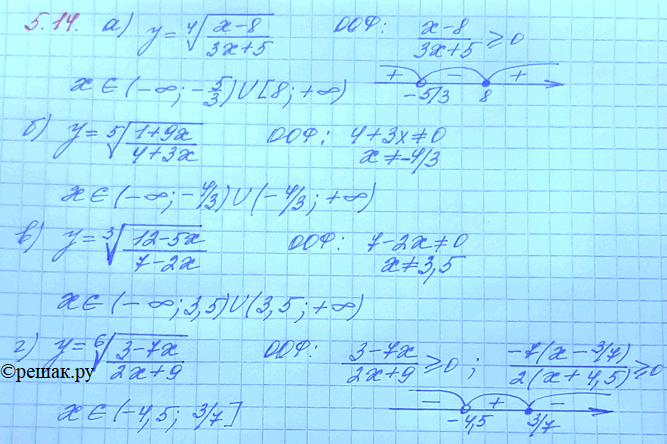 5.14. а) y = ⁴√((x-8)/(3x+5)) ООФ: (x-8)/(3x+5) ≥ 0
x ∈ (-∞; -5/3) ∪ [8; +∞) + - + -5/3 8
б) y = ⁵√((1+9x)/(4+3x)) ООФ: 4+3x ≠ 0
x ≠ -4/3
x ∈ (-∞; -4/3) ∪ (-4/3; +∞)
в) y = ³√((12-5x)/(7-2x)) ООФ: 7-2x ≠ 0
x ≠ 3,5
x ∈ (-∞; 3,5) ∪ (3,5; +∞)
г) y = ⁶√((3-7x)/(2x+9)) ООФ: (3-7x)/(2x+9) ≥ 0; -7(x-3/7)/2(x+4,5) ≥ 0
©решак.ру
x ∈ (-4,5; 3/7] - + - -4,5 3/7